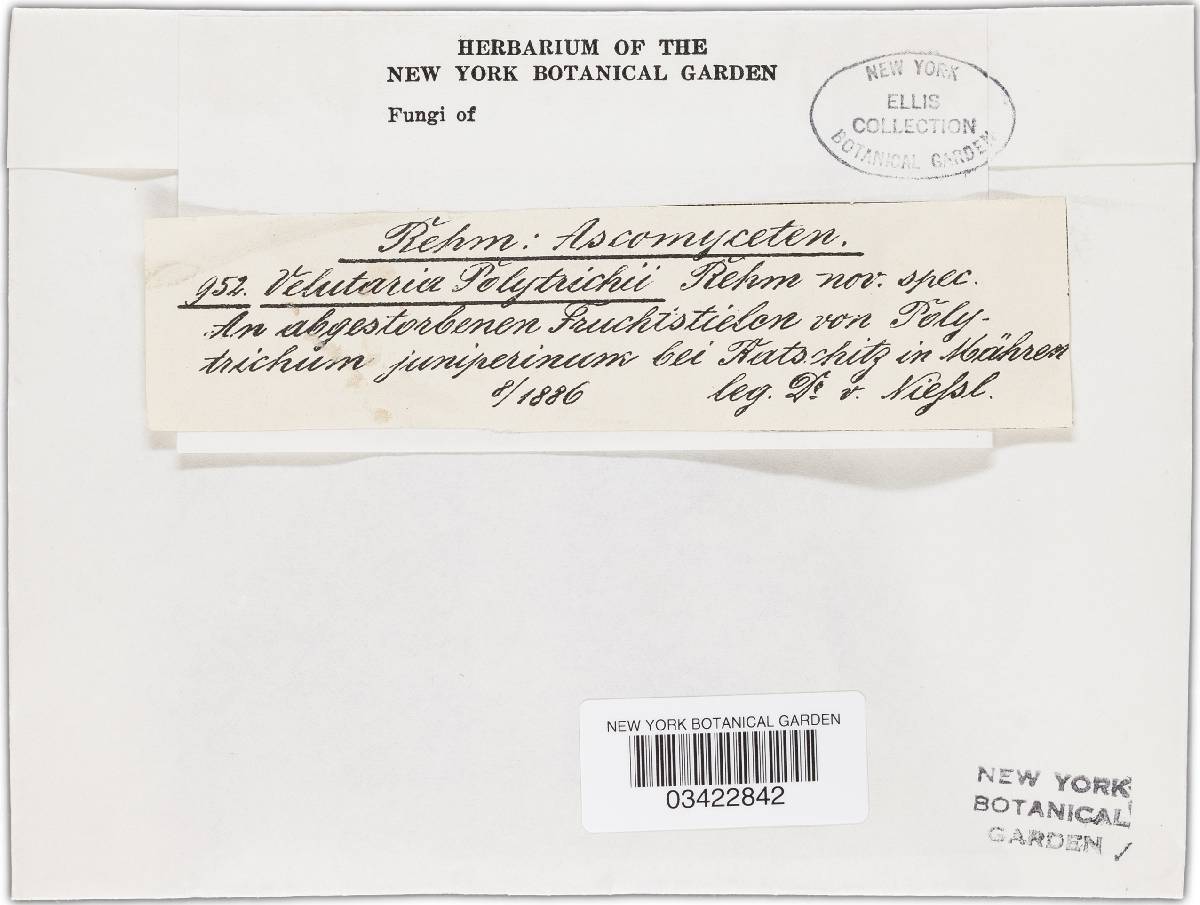 HERBARIUM OF THE
NEW YORK BOTANICAL GARDEN
Fungi of
NEW YORK
ELLIS
COLLECTION
BOTANICAL GARDEN
Rehm: Ascomyceten.
952. Velutaria Polytrichii Rehm nov. spec.
An abgestorbenen Fruchtstielen von Poly-
trichum juniperinum bei Katschitz in Mähren
8/1886 leg. Dr. v. Niessl.
NEW YORK BOTANICAL GARDEN
03422842
NEW YORK
BOTANICAL
GARDEN